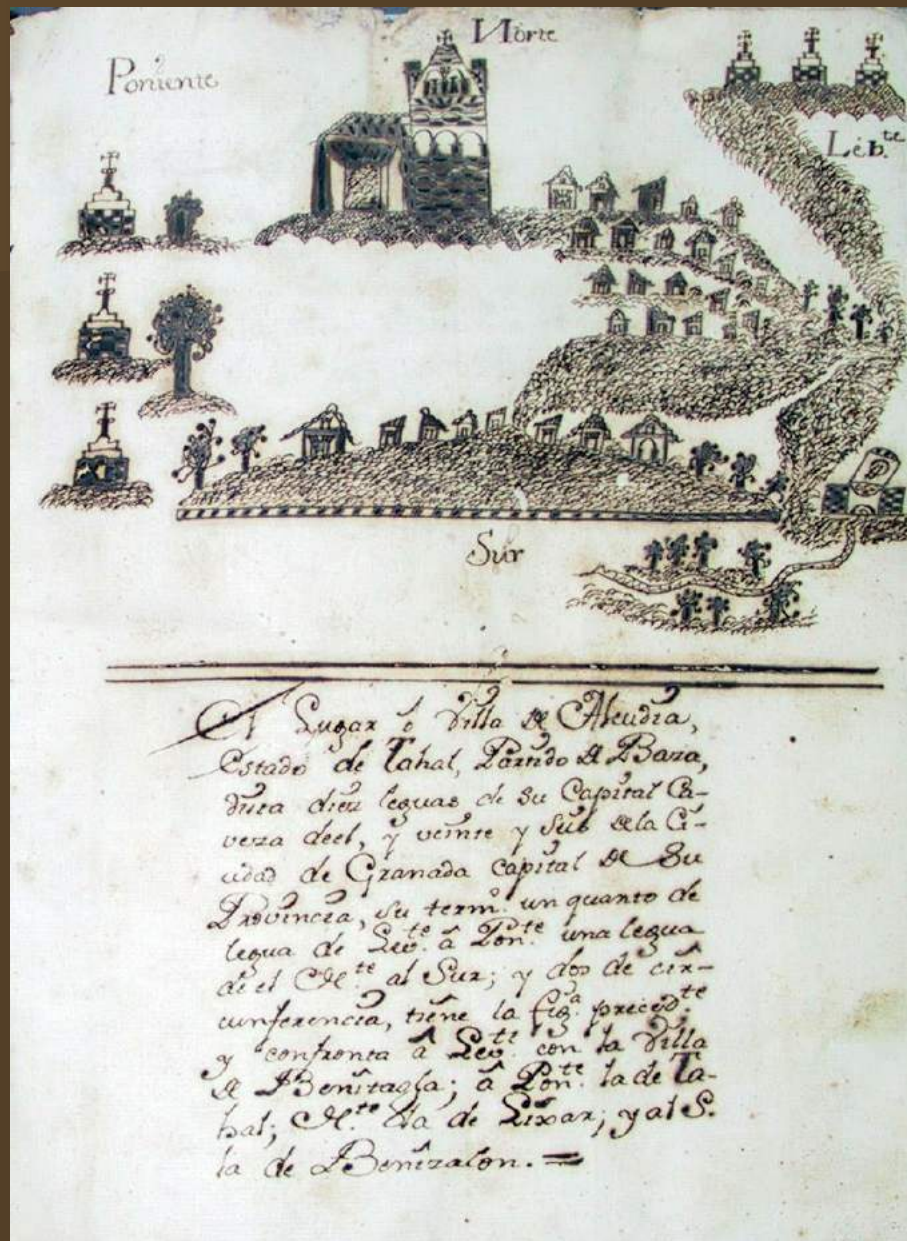 Norte
Poniente
Leb.te
Sur
El Lugar ô Villa de Alcudia,
Estado de Tahal, Partido de Baza,
dista diez leguas de su Capital Ca-
veza deel, y veinte y seis de la Ci-
udad de Granada capital de su
Provincia, su term.o un quarto de
legua de Lev.te â Pon.te una legua
de el N.te al Sur; y dos de cir-
cunferencia, tiene la fig.a preced.te
y confronta â Lev.te con la Villa
de Benitagla; â Pon.te la de Ta-
hal; N.te la de Lixar; y al S.
la de Benizalon. =